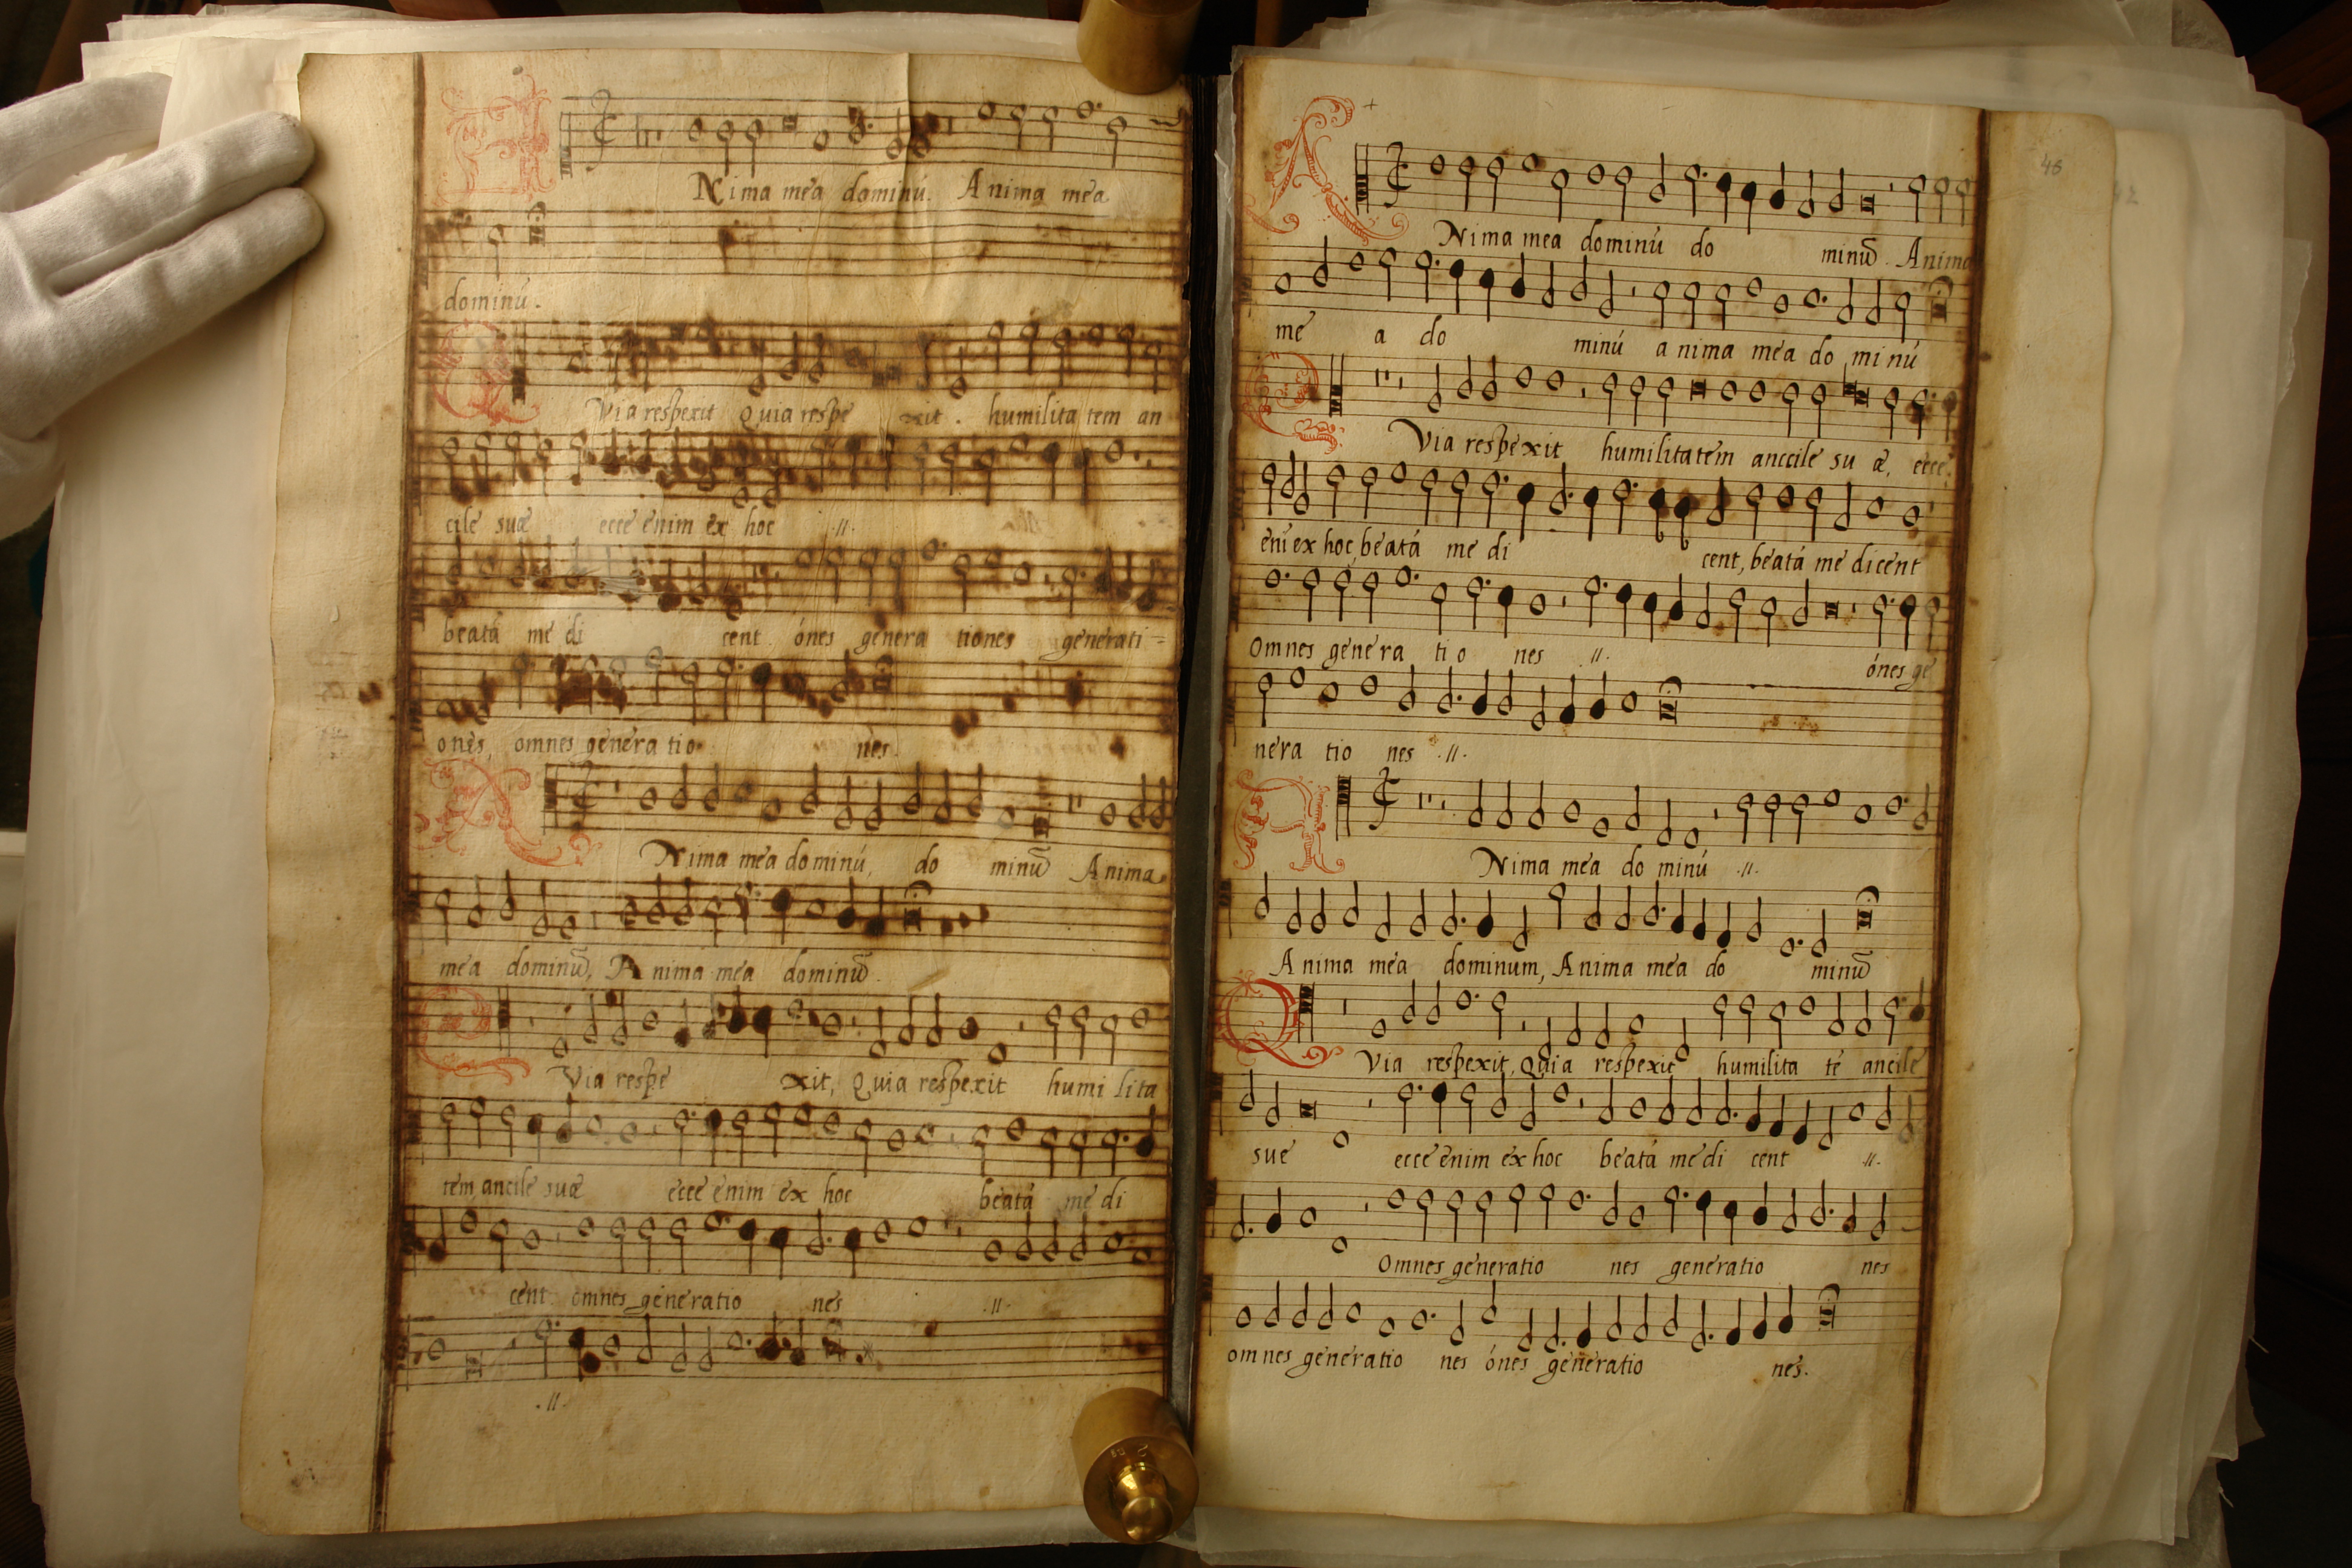 ANima mea dominú. Anima mea
dominú.
QVia respexit Quia respe xit. humilita tem an
cile suæ ecce enim ex hoc .//.
beatá me di cent. ónes genera tiones generati-
ones, omnes genera tio nes.
ANima mea dominú, do minū Anima
mea dominū, Anima mea dominū.
QVia respe xit, Quia respexit humi lita
tem, ancile suæ ecce enim ex hoc beatá me di
cent omnes generatio nes .//.
.//.
48
ANima mea dominú do minū. Anima
me a do minú anima mea do mi nú
QVia respexit humilitatem anccile su æ, ecce.
eni ex hoc, beatá me di cent, beatá me dicent
Omnes genera tio nes .//. ónes ge
nera tio nes .//.
ANima mea do minú .//.
Anima mea dominum, Anima mea do minū
QVia respexit, Quia respexit humilita té ancile
sue ecce enim ex hoc beatá me di cent .//.
Omnes generatio nes generatio nes
omnes generatio nes ónes generatio nes.